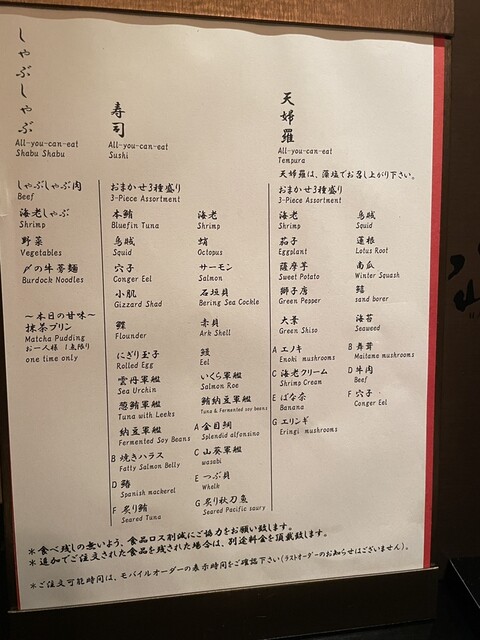 しゃぶしゃぶ
All-you-can-eat
Shabu Shabu
しゃぶしゃぶ肉
Beef
海老しゃぶ
Shrimp
野菜
Vegetables
〆の牛蒡麺
Burdock Noodles
～本日の甘味～
抹茶プリン
Matcha Pudding
お一人様 1点限り
one time only
寿司
All-you-can-eat
Sushi
おまかせ3種盛り
3-Piece Assortment
本鮪
Bluefin Tuna
海老
Shrimp
烏賊
Squid
蛸
Octopus
穴子
Conger Eel
サーモン
Salmon
小肌
Gizzard Shad
石垣貝
Bering Sea Cockle
鰈
Flounder
赤貝
Ark Shell
にぎり玉子
Rolled Egg
鰻
Eel
雲丹軍艦
Sea Urchin
いくら軍艦
Salmon Roe
葱鮪軍艦
Tuna with Leeks
鮪納豆軍艦
Tuna & Fermented soy beans
納豆軍艦
Fermented Soy Beans
A 金目鯛
Splendid alfonsino
B 焼きハラス
Fatty Salmon Belly
C 山葵軍艦
wasabi
D 鰆
Spanish mackerel
E つぶ貝
Whelk
F 炙り鮪
Seared Tuna
G 炙り秋刀魚
Seared Pacific saury
天婦羅
All-you-can-eat
Tempura
天婦羅は、藻塩でお召し上がり下さい。
おまかせ3種盛り
3-Piece Assortment
海老
Shrimp
烏賊
Squid
茄子
Eggplant
蓮根
Lotus Root
薩摩芋
Sweet Potato
南瓜
Winter Squash
獅子唐
Green Pepper
鱚
sand borer
大葉
Green Shiso
海苔
Seaweed
A エノキ
Enoki mushrooms
B 舞茸
Maitame mushrooms
C 海老クリーム
Shrimp Cream
D 牛肉
Beef
E ばな奈
Banana
F 穴子
Conger Eel
G エリンギ
Eringi mushrooms
＊食べ残しの無いよう、食品ロス削減にご協力をお願い致します。
＊追加でご注文された食品を残された場合は、別途料金を頂戴致します。
＊ご注文可能時間は、モバイルオーダーの表示時間をご確認下さい(ラストオーダーのお知らせはございません)。